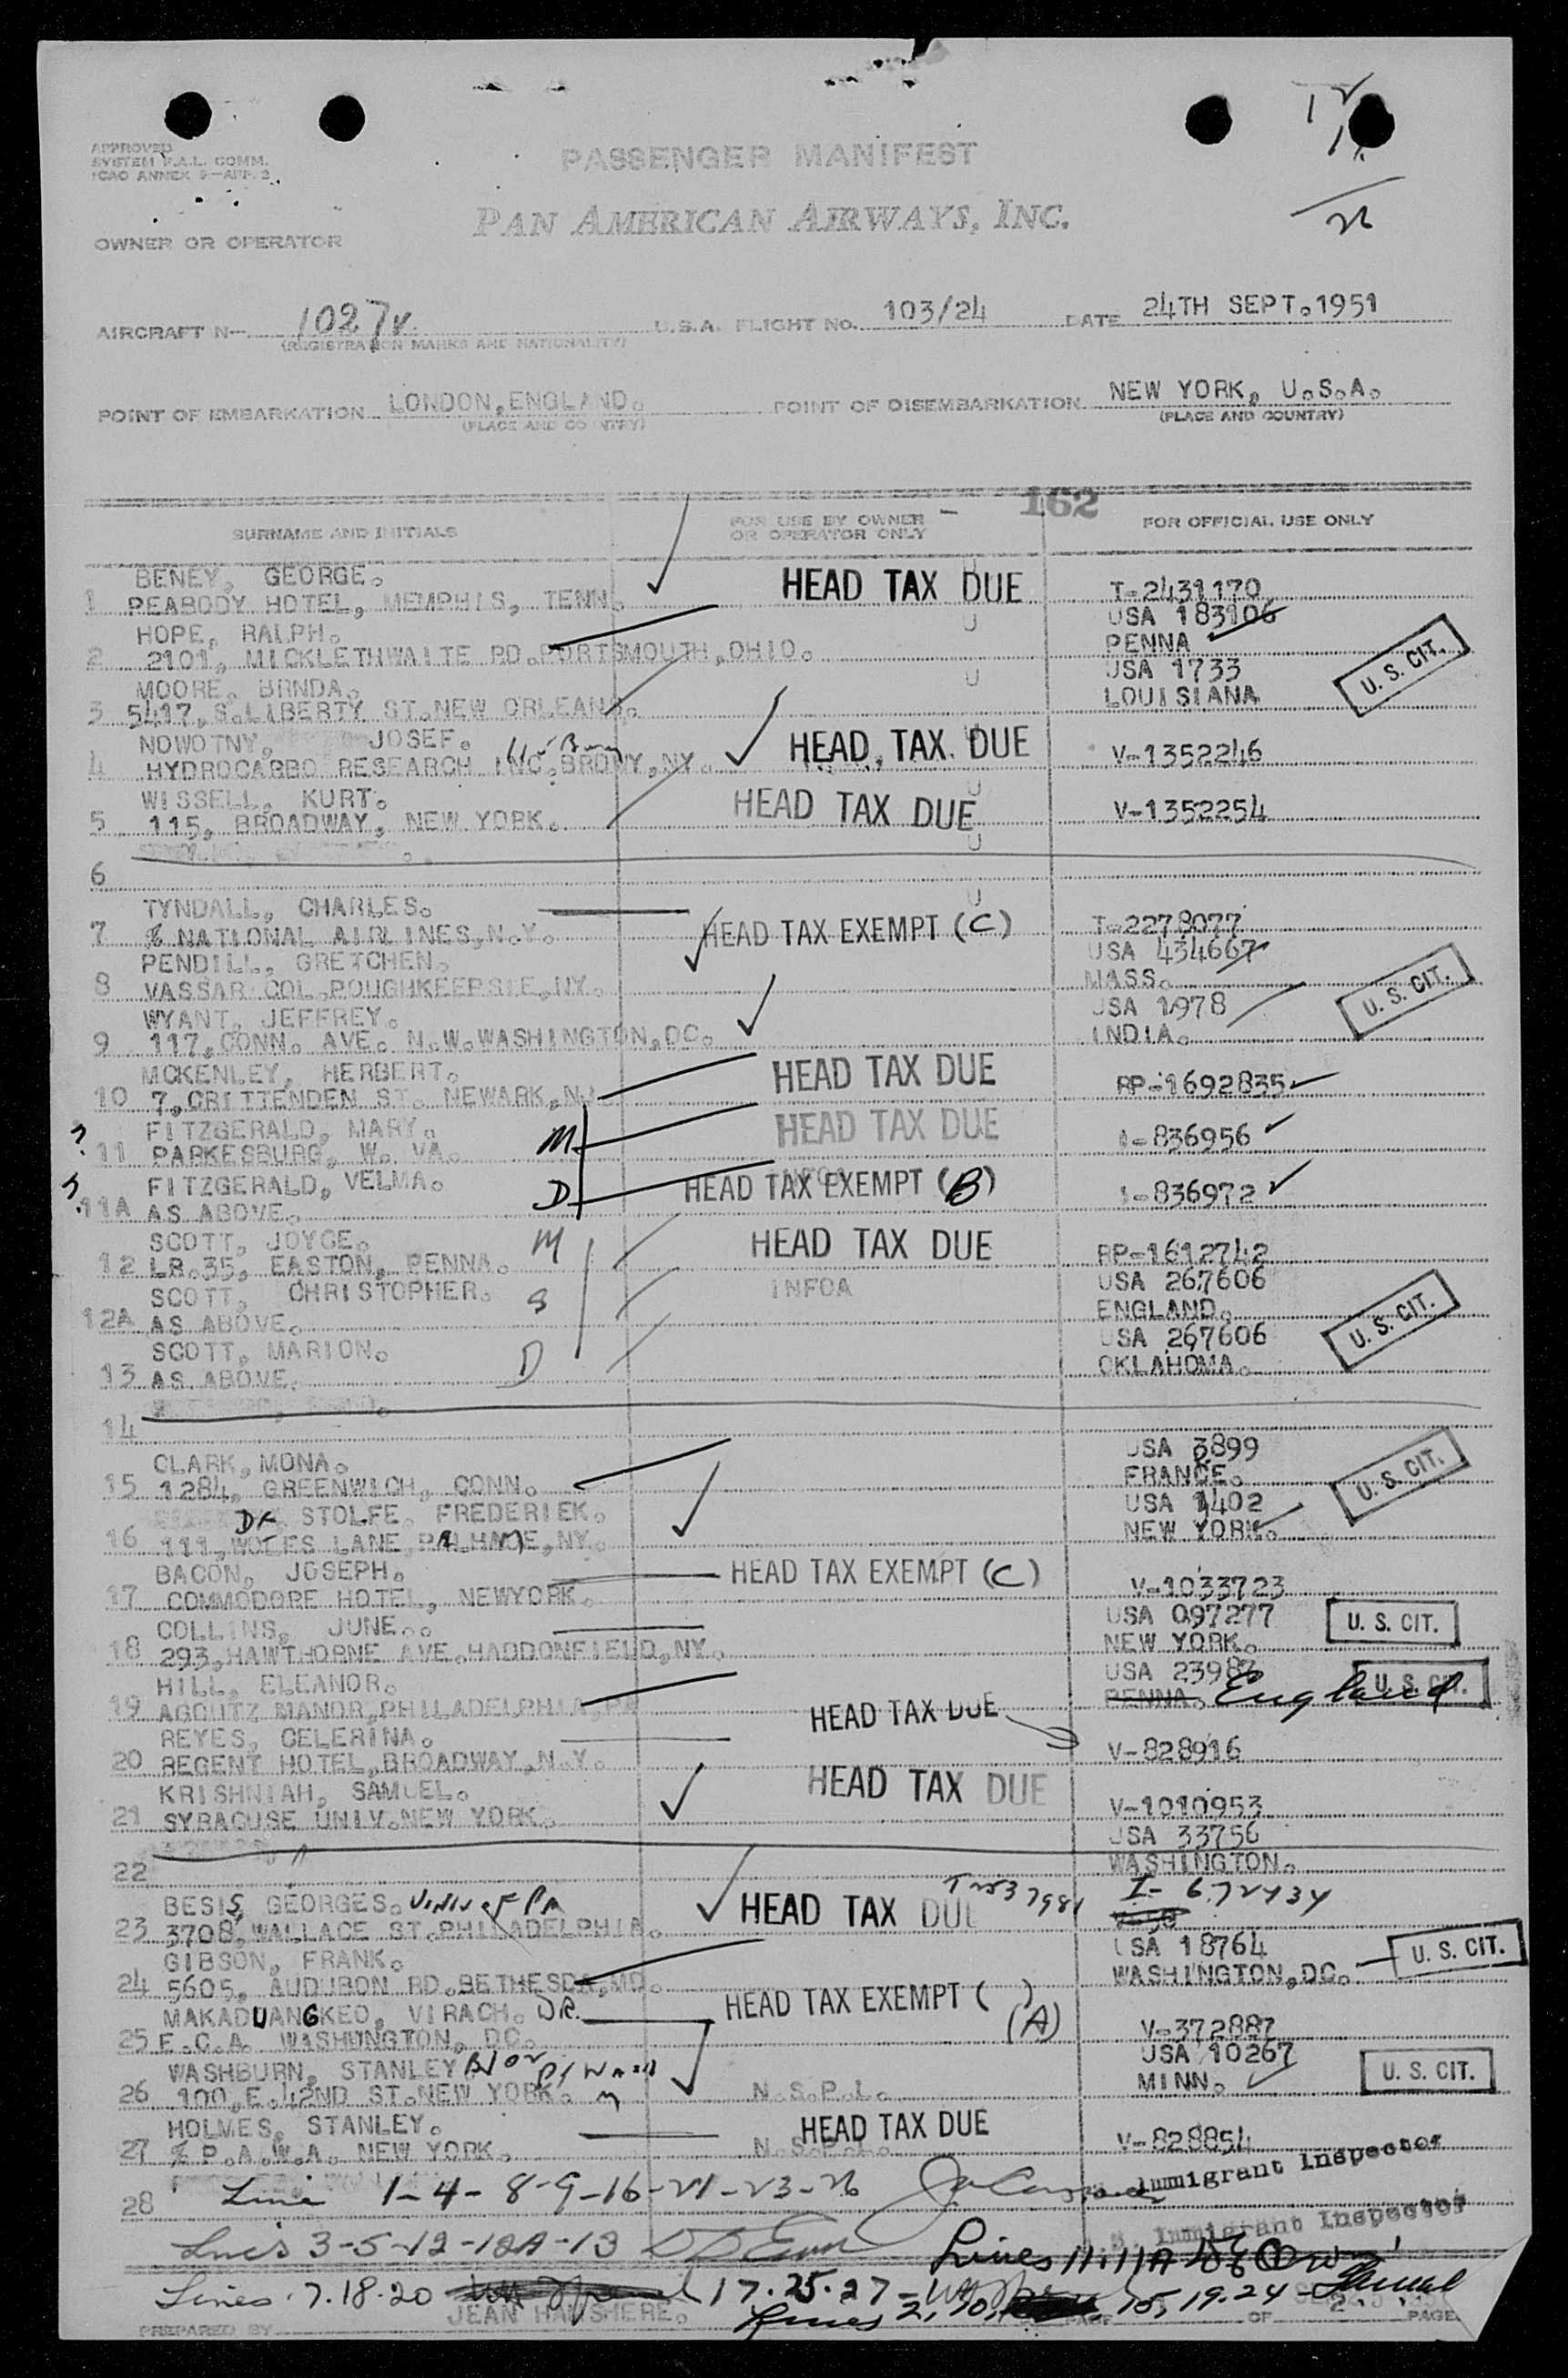 APPROVED
SYSTEM P.A.L. COMM.
ICAO ANNEX 9-APP. 2
PASSENGER MANIFEST
PAN AMERICAN AIRWAYS, INC.
OWNER OR OPERATOR
AIRCRAFT N- 1027V U.S.A. FLIGHT NO. 103/24 DATE 24TH SEPT.1951
(REGISTRATION MARKS AND NATIONALITY)
POINT OF EMBARKATION LONDON,ENGLAND. POINT OF DISEMBARKATION NEW YORK, U.S.A.
(PLACE AND COUNTRY) (PLACE AND COUNTRY)
162
SURNAME AND INITIALS FOR USE BY OWNER OR OPERATOR ONLY FOR OFFICIAL USE ONLY
BENEY, GEORGE. HEAD TAX DUE U T-2431170
1 PEABODY HOTEL, MEMPHIS, TENN.
HOPE, RALPH. U USA 183106
2 2101, MICKLETHWAITE RD.PORTSMOUTH,OHIO. PENNA
MOORE, BRNDA. U USA 1733 U. S. CIT.
3 5417,S.LIBERTY ST.NEW ORLEANS. LOUISIANA
NOWOTNY, JOSEF. HEAD TAX DUE V-1352246
4 HYDROCARBO RESEARCH INC.BRDWY,NY.
WISSELL, KURT. U HEAD TAX DUE V-1352254
5 115, BROADWAY, NEW YORK.
U
6
TYNDALL, CHARLES. U HEAD TAX EXEMPT (C) T-2278077
7 % NATIONAL AIRLINES,N.Y.
PENDILL, GRETCHEN. USA 434667
8 VASSAR COL.POUGHKEEPSIE,NY. MASS.
WYANT, JEFFREY. USA 1978 U. S. CIT.
9 117,CONN. AVE. N.W.WASHINGTON,DC. INDIA.
MCKENLEY, HERBERT. HEAD TAX DUE RP-1692835
10 7,CRITTENDEN ST. NEWARK,NJ.
FITZGERALD, MARY. M HEAD TAX DUE I-836956
11 PARKESBURG, W. VA.
FITZGERALD, VELMA. D INFOA HEAD TAX EXEMPT (B) I-836972
11A AS ABOVE.
SCOTT, JOYCE. M HEAD TAX DUE RP-1612742
12 LR.35, EASTON, PENNA.
SCOTT, CHRISTOPHER. S INFOA USA 267606
12A AS ABOVE. ENGLAND.
SCOTT, MARION. D USA 267606 U. S. CIT.
13 AS ABOVE. OKLAHOMA.
14
CLARK, MONA. USA 3899
15 1284, GREENWICH, CONN. FRANCE.
DK STOLFE, FREDERIEK. USA 1402 U. S. CIT.
16 111, LANE, NY. NEW YORK.
BACON, JOSEPH. HEAD TAX EXEMPT (C) V-1033723
17 COMMODORE HOTEL, NEWYORK.
COLLINS, JUNE.. USA 097277 U. S. CIT.
18 293,HAWTHORNE AVE.HADDONFIELD,NY. NEW YORK.
HILL, ELEANOR. USA 23983 U. S. CIT.
19 MANOR,PHILADELPHIA,PA PENNA. England
REYES, CELERINA. HEAD TAX DUE V-828916
20 REGENT HOTEL,BROADWAY,N.Y.
KRISHNIAH, SAMUEL. HEAD TAX DUE V-1010953
21 SYRACUSE UNIV.NEW YORK.
USA 33756
22 WASHINGTON.
BESIS, GEORGES. UNIV OF PA HEAD TAX DUE I- 672434
23 3708, WALLACE ST.PHILADELPHIA.
GIBSON, FRANK. USA 18764 U. S. CIT.
24 5605, AUDUBON RD.BETHESDA,MD. WASHINGTON,DC.
MAKADUANGKEO, VIRACH. DR. HEAD TAX EXEMPT ( ) (A) V-372887
25 E.C.A. WASHUNGTON, DC.
WASHBURN, STANLEY USA 10267 U. S. CIT.
26 100,E.42ND ST.NEW YORK. N.S.P.L. MINN.
HOLMES, STANLEY. HEAD TAX DUE V-828854
27 % P.A.W.A. NEW YORK. N.S.P.L.
28 Line 1-4-8-9-16-21-23-26 Immigrant Inspector
Immigrant Inspector
Lines 3-5-12-12A-13 Lines 11.11A
Lines 7.18.20 17.25.27
JEAN HAWSHERE. Lines 2, 10, 15, 19. 24
PREPARED BY PAGE OF 2. PAGE